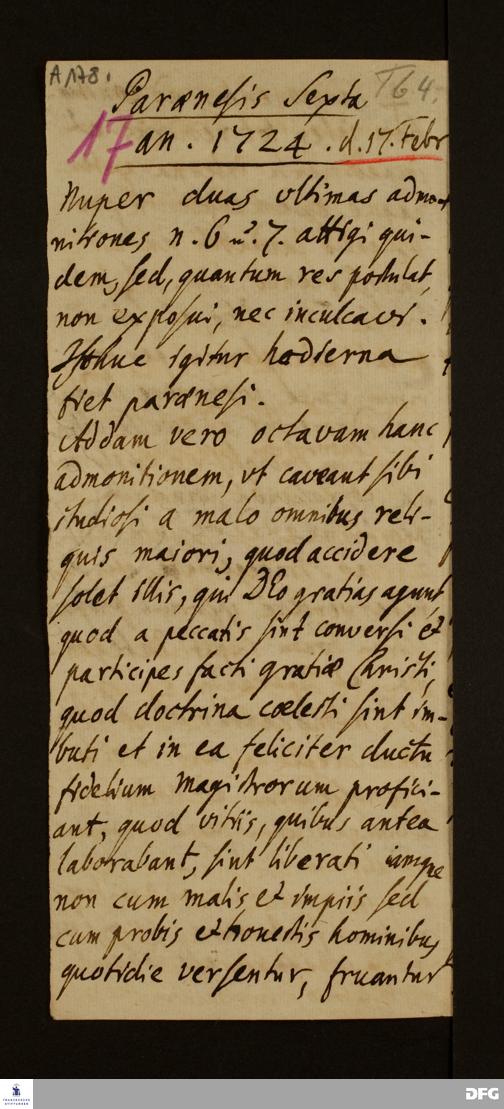 A 178.
T 64.
Parænesis Sexta
17 an. 1724. d. 17. Febr
Nuper duas vltimas admo-
nitiones n. 6 7. attigi qui-
dem, sed, quantum res postulat,
non exposui, nec inculcavi.
igitur hodierna
fiet parænesi.
Addam vero octavam hanc
admonitionem, vt caveant sibi
studiosi a malo omnibus reli-
quis maiori, quod accidere
solet illis, qui DEo gratias agunt
quod a peccatis sint conversi et
participes facti gratiæ Christi,
quod doctrina cœlesti sint im-
buti et in ea feliciter ductu
fidelium Magistrorum profici-
ant, quod vitiis, quibus antea
laborabant, sint liberati iamque
non cum malis et impiis sed
cum probis et honestis hominibus
quotidie versentur, fruantur
FRANCKESCHE
STIFTUNGEN
DFG